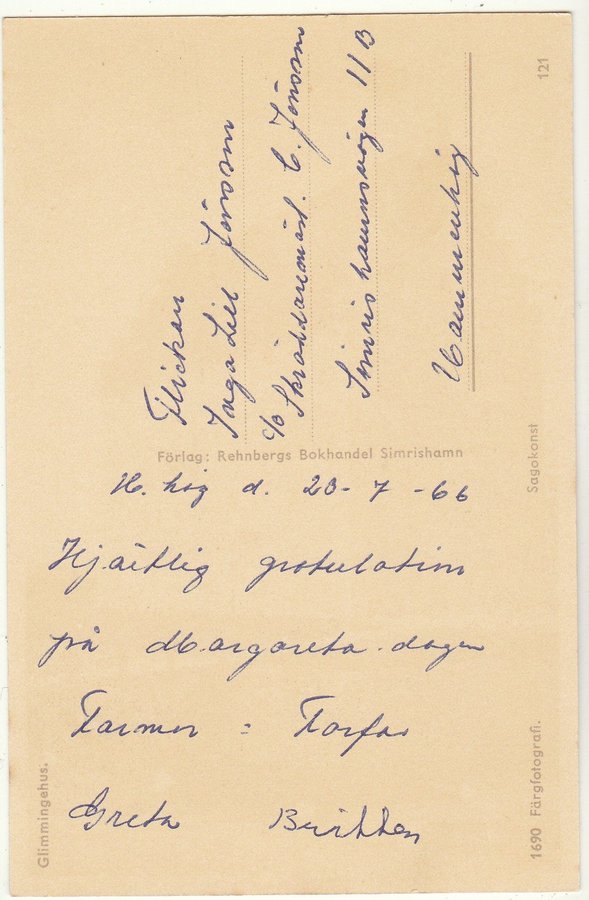 Flickan
Inga Lill Jönsson
c/o Skräddaremäst. C. Jönsson
Simrishamnsvägen 11 B
Hammenhög
Förlag: Rehnbergs Bokhandel Simrishamn
H. hög d. 20 - 7 - 66
Hjärtlig gratulation
på Margareta-dagen
Farmor = Farfar
Greta Britten
Glimmingehus.
1690 Färgfotografi.
Sagokonst
121